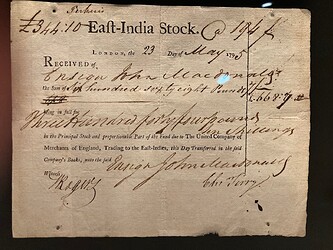 Perkins
£344.10 East-India Stock. @ 194
London, the 23 Day of May 1795
Received of
Ensign John Macdonald
the Sum of Six hundred Sixty eight Pounds
£.668.7
Being in full for
Three Hundred forty four pounds
ten Shillings
in the Principal Stock and proportionable Part of the Fund due to The United Company of
Merchants of England, Trading to the East-Indies, this Day Transferred in the said
Company's Books, unto the said Ensign John Macdonald
Witness